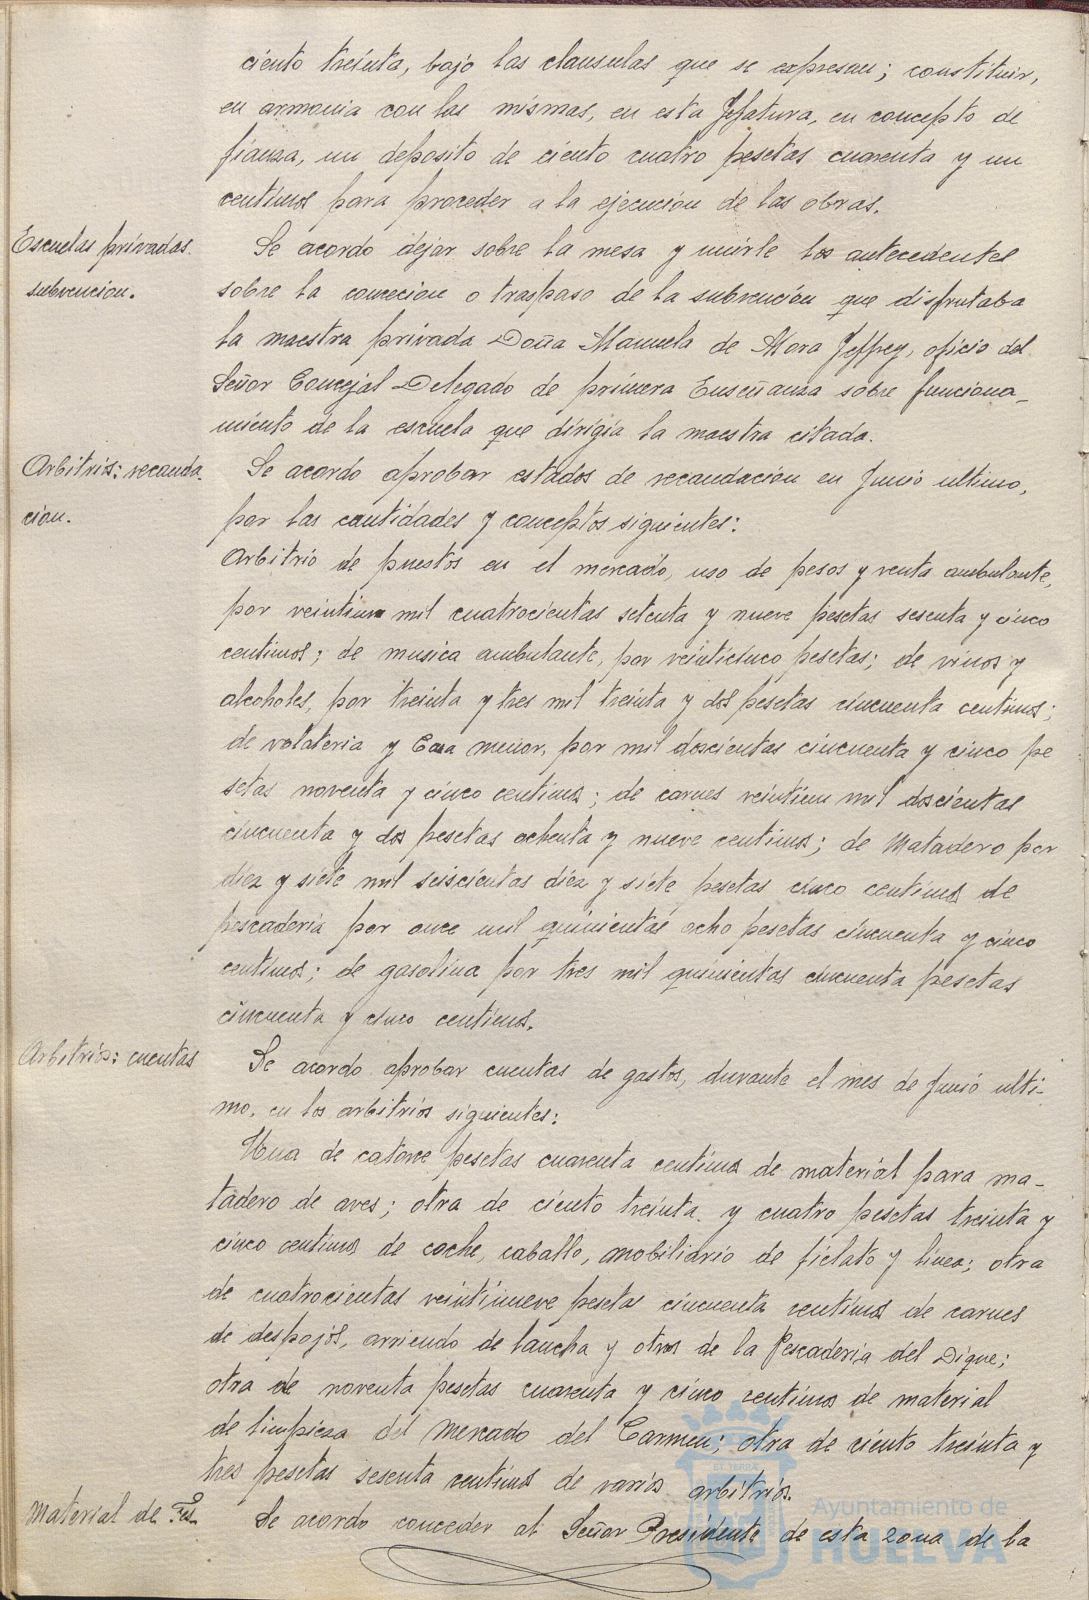 ciento treinta, bajo las clausulas que se expresan; constituir,
en armonia con las mismas, en esta Jefatura, en concepto de
fianza, un deposito de ciento cuatro pesetas cuarenta y un
centimos para proceder a la ejecución de las obras.
Escuelas privadas.
subvencion.
Se acordo dejar sobre la mesa y unirle los antecedentes
sobre la concecion o traspaso de la subvención que disfrutaba
la maestra privada Doña Manuela de Mora Jeffrey, oficio del
Señor Concejal Delegado de primera Enseñanza sobre funciona-
miento de la escuela que dirigia la maestra citada.
Arbitrios: recauda-
cion.
Se acordo aprobar estados de recaudación en Junio ultimo,
por las cantidades y conceptos siguientes:
Arbitrio de puestos en el mercado, uso de pesos y venta ambulante,
por veintiun mil cuatrocientas setenta y nueve pesetas sesenta y cinco
centimos; de musica ambulante, por veinticinco pesetas; de vinos y
alcoholes, por treinta y tres mil treinta y dos pesetas cincuenta centimos;
de volateria y Caza menor, por mil doscientas cincuenta y cinco pe
setas noventa y cinco centimos; de carnes veintiun mil doscientas
cincuenta y dos pesetas ochenta y nueve centimos; de Matadero por
diez y siete mil seiscientas diez y siete pesetas cinco centimos de
pescaderia por once mil quinientas ocho pesetas cincuenta y cinco
centimos; de gasolina por tres mil quinientas cincuenta pesetas
cincuenta y cinco centimos.
Arbitrios: cuentas
Se acordo aprobar cuentas de gastos, durante el mes de Junio ulti-
mo, en los arbitrios siguientes:
Una de catorce pesetas cuarenta centimos de material para ma-
tadero de aves; otra de ciento treinta y cuatro pesetas treinta y
cinco centimos de coche, caballo, mobiliario de fielato y linea; otra
de cuatrocientas veintinueve pesetas cincuenta centimos de carnes
de despojos, arriendo de lancha y otros de la Pescaderia del Dique;
otra de noventa pesetas cuarenta y cinco centimos de material
de limpieza del Mercado del Carmen; otra de ciento treinta y
tres pesetas sesenta centimos de varios arbitrios.
Material de
Se acordo conceder al Señor Presidente de esta zona de la
Ayuntamiento de
HUELVA